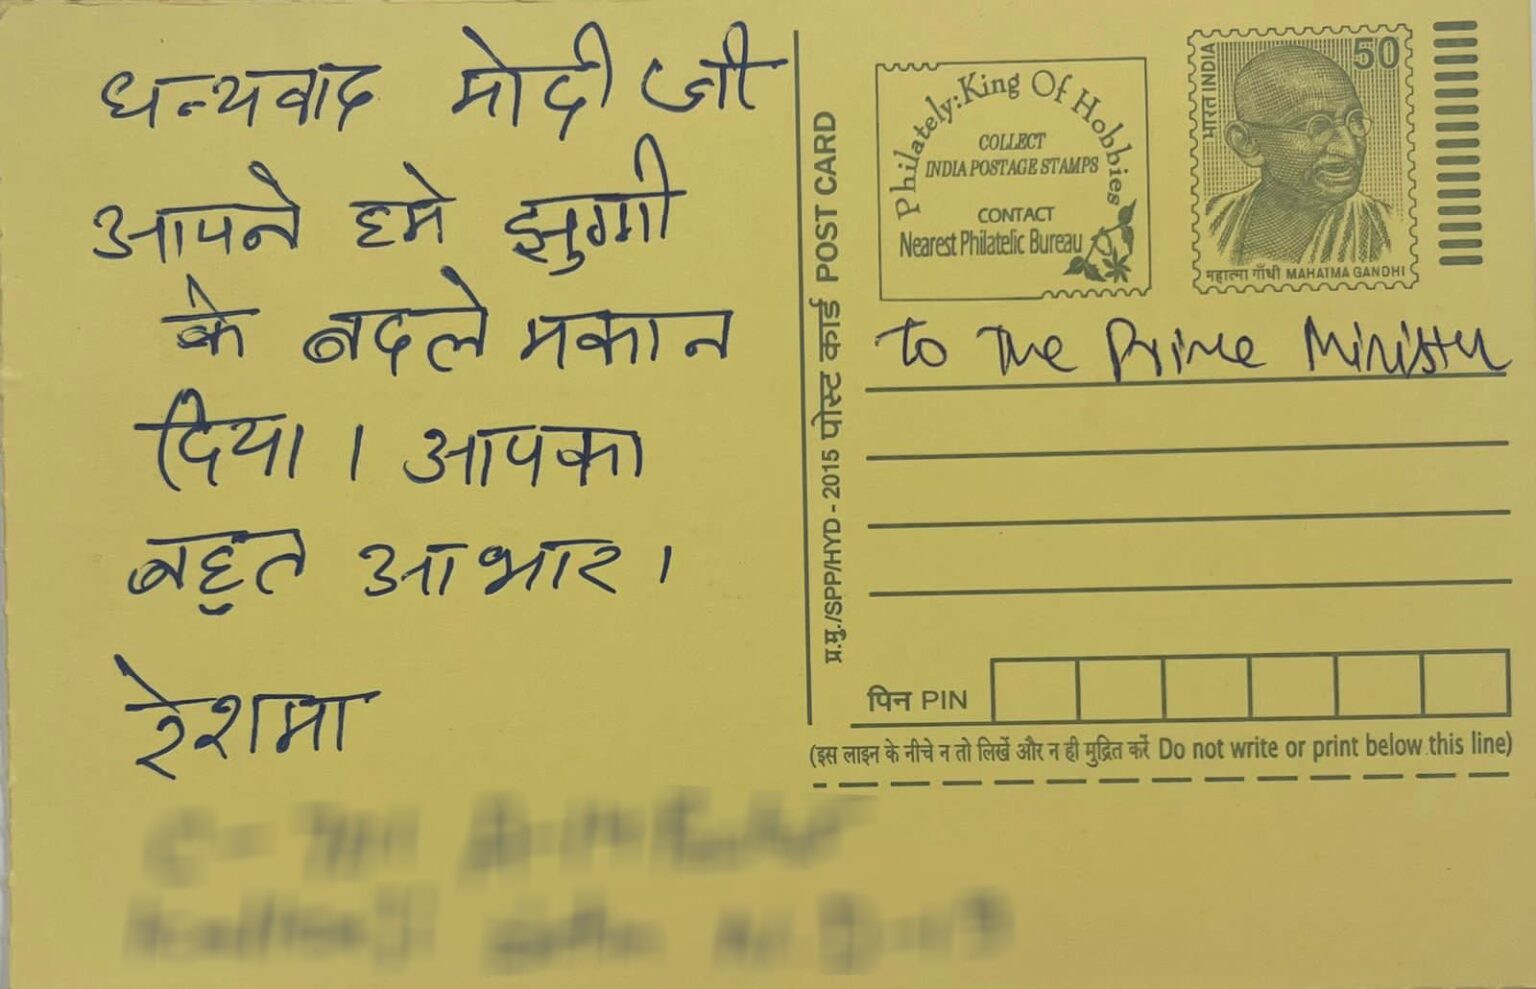 धन्यवाद मोदी जी
आपने हमे झुग्गी
के बदले मकान
दिया । आपका
बहुत आभार ।
रेशमा
प्र.मु./SPP/HYD - 2015 पोस्ट कार्ड POST CARD
Philately: King Of Hobbies
COLLECT
INDIA POSTAGE STAMPS
CONTACT
Nearest Philatelic Bureau
भारत INDIA
50
महात्मा गाँधी MAHATMA GANDHI
To The Prime Minister
पिन PIN
(इस लाइन के नीचे न तो लिखें और न ही मुद्रित करें Do not write or print below this line)